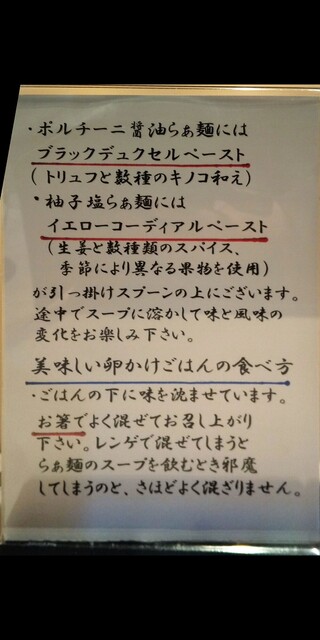 ・ポルチーニ醤油らぁ麺には
ブラックデュクセルペースト
(トリュフと数種のキノコ和え)
・柚子塩らぁ麺には
イエローコーディアルペースト
(生姜と数種類のスパイス、
季節により異なる果物を使用)
が引っ掛けスプーンの上にございます。
途中でスープに溶かして味と風味の
変化をお楽しみ下さい。
美味しい卵かけごはんの食べ方
・ごはんの下に味を沈ませています。
お箸でよく混ぜてお召し上がり
下さい。レンゲで混ぜてしまうと
らぁ麺のスープを飲むとき邪魔
してしまうのと、さほどよく混ざりません。